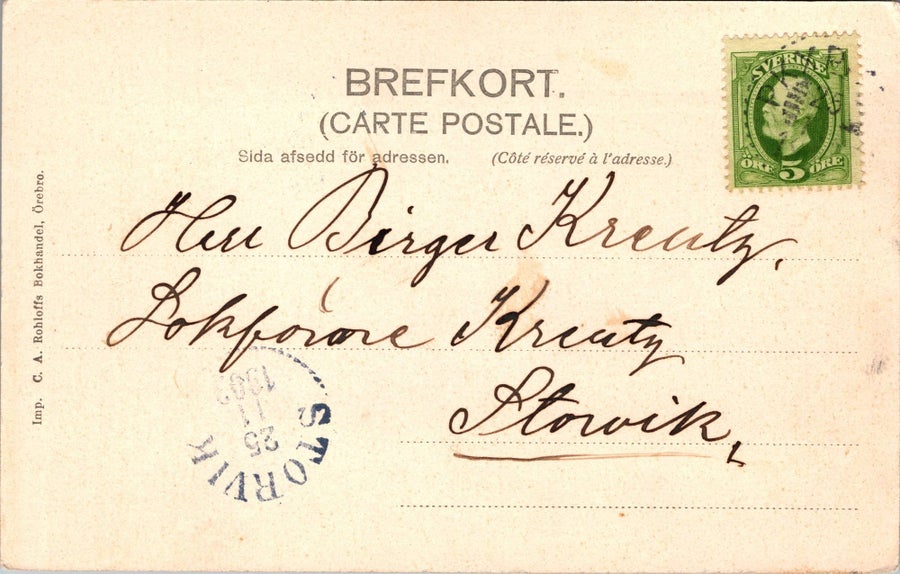 BREFKORT.
(CARTE POSTALE.)
Sida afsedd för adressen. (Côté réservé à l'adresse.)
SVERIGE
ÖRE 5 ÖRE
Herr Birger Kreutz,
Lokförare Kreutz
Storvik,
STORVIK
25
11
1902
Imp. C. A. Rohloffs Bokhandel, Örebro.